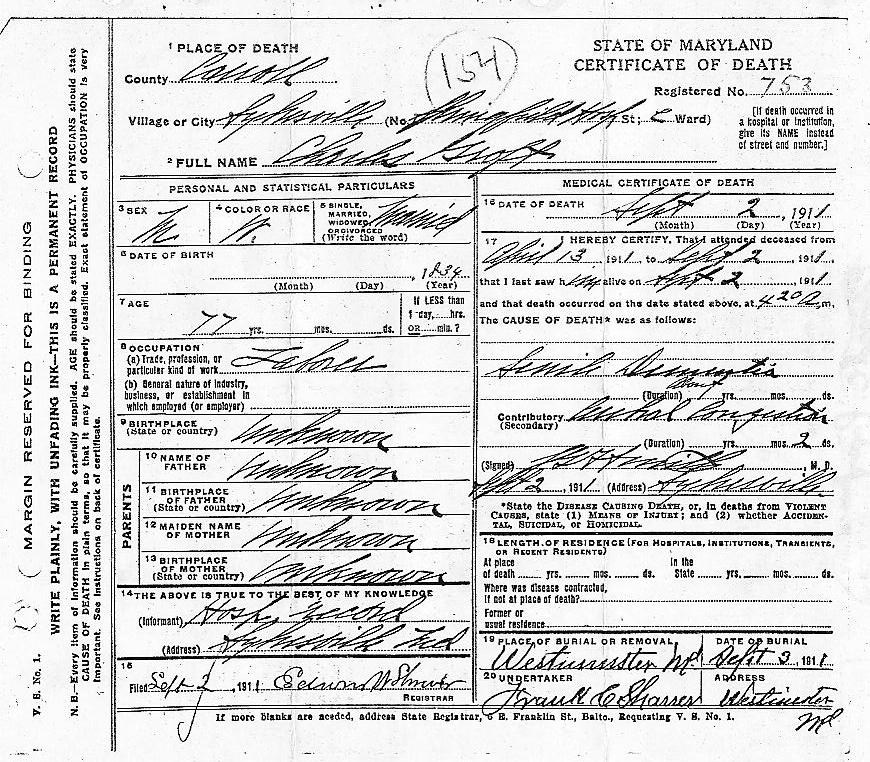 154
STATE OF MARYLAND
CERTIFICATE OF DEATH
Registered No. 753
1 PLACE OF DEATH
County Carroll
Village or City Sykesville (No. Springfield Hosp St; Ward)
[If death occurred in
a hospital or institution,
give its NAME instead
of street and number.]
2 FULL NAME Charles Groff
PERSONAL AND STATISTICAL PARTICULARS
3 SEX M.
4 COLOR OR RACE W.
5 SINGLE,
MARRIED,
WIDOWED,
OR DIVORCED
(Write the word) Married
6 DATE OF BIRTH
, 1834
(Month) (Day) (Year)
7 AGE
77 yrs. mos. ds.
If LESS than
1 day, hrs.
OR min.?
8 OCCUPATION
(a) Trade, profession, or
particular kind of work Laborer
(b) General nature of industry,
business, or establishment in
which employed (or employer)
9 BIRTHPLACE
(State or country) Unknown
PARENTS
10 NAME OF
FATHER Unknown
11 BIRTHPLACE
OF FATHER
(State or country) Unknown
12 MAIDEN NAME
OF MOTHER Unknown
13 BIRTHPLACE
OF MOTHER
(State or country) Unknown
14 THE ABOVE IS TRUE TO THE BEST OF MY KNOWLEDGE
(Informant) Hosp. record
(Address) Sykesville Md
15
Filed Sept 2, 1911 Edwin
REGISTRAR
MEDICAL CERTIFICATE OF DEATH
16 DATE OF DEATH Sept 2, 1911
(Month) (Day) (Year)
17 I HEREBY CERTIFY, That I attended deceased from
April 13 1911, to Sept 2, 1911,
that I last saw him alive on Sept 2, 1911
and that death occurred on the date stated above, at 4 20 a m.
The CAUSE OF DEATH* was as follows:
Senile Dementia
(Duration) yrs. mos. ds.
Contributory
(Secondary) Congestion
(Duration) yrs. mos. 2 ds.
(Signed) M. D.
Sept 2, 1911 (Address) Sykesville
*State the DISEASE CAUSING DEATH, or, in deaths from VIOLENT
CAUSES, state (1) MEANS OF INJURY; and (2) whether ACCIDEN-
TAL, SUICIDAL, or HOMICIDAL.
18 LENGTH OF RESIDENCE (FOR HOSPITALS, INSTITUTIONS, TRANSIENTS,
OR RECENT RESIDENTS)
At place
of death yrs. mos. ds.
In the
State yrs. mos. ds.
Where was disease contracted,
if not at place of death?
Former or
usual residence
19 PLACE OF BURIAL OR REMOVAL
Westminster Md
DATE OF BURIAL
Sept 3, 1911
20 UNDERTAKER
Frank C Sharrer
ADDRESS
Westminster
Md
If more blanks are needed, address State Registrar, 6 E. Franklin St., Balto., Requesting V. S. No. 1.
V. S. No. 1.
MARGIN RESERVED FOR BINDING
WRITE PLAINLY, WITH UNFADING INK—THIS IS A PERMANENT RECORD
N. B.—Every item of information should be carefully supplied. AGE should be stated EXACTLY. PHYSICIANS should state
CAUSE OF DEATH in plain terms, so that it may be properly classified. Exact statement of OCCUPATION is very
important. See instructions on back of certificate.